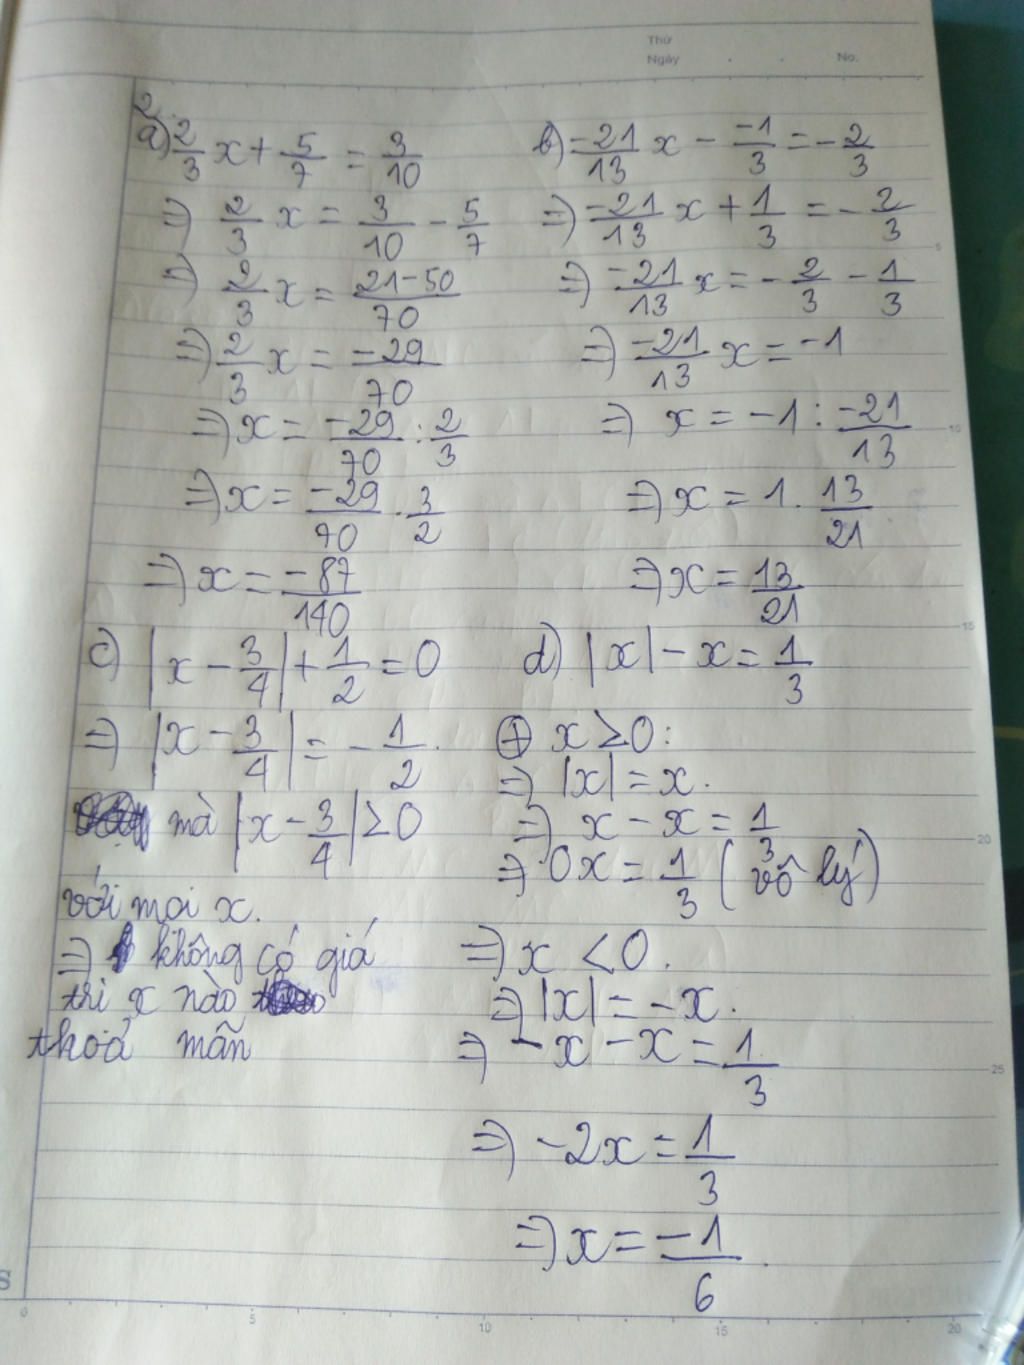 Thứ
Ngày . . No.
2.
a) 2/3 x + 5/7 = 3/10
=> 2/3 x = 3/10 - 5/7
=> 2/3 x = 21-50/70
=> 2/3 x = -29/70
=> x = -29/70 : 2/3
=> x = -29/70 . 3/2
=> x = -87/140
b) -21/13 x - -1/3 = -2/3
=> -21/13 x + 1/3 = -2/3
=> -21/13 x = -2/3 - 1/3
=> -21/13 x = -1
=> x = -1 : -21/13
=> x = 1 . 13/21
=> x = 13/21
c) |x - 3/4| + 1/2 = 0
=> |x - 3/4| = -1/2.
mà |x - 3/4| ≥ 0
với mọi x.
=> không có giá
trị x nào
thoả mãn
d) |x| - x = 1/3
⊕ x ≥ 0:
=> |x| = x.
=> x - x = 1/3
=> 0x = 1/3 (vô lý)
=> x < 0.
=> |x| = -x.
=> -x - x = 1/3
=> -2x = 1/3
=> x = -1/6.
5
10
15
20
25
S
0 5 10 15 20